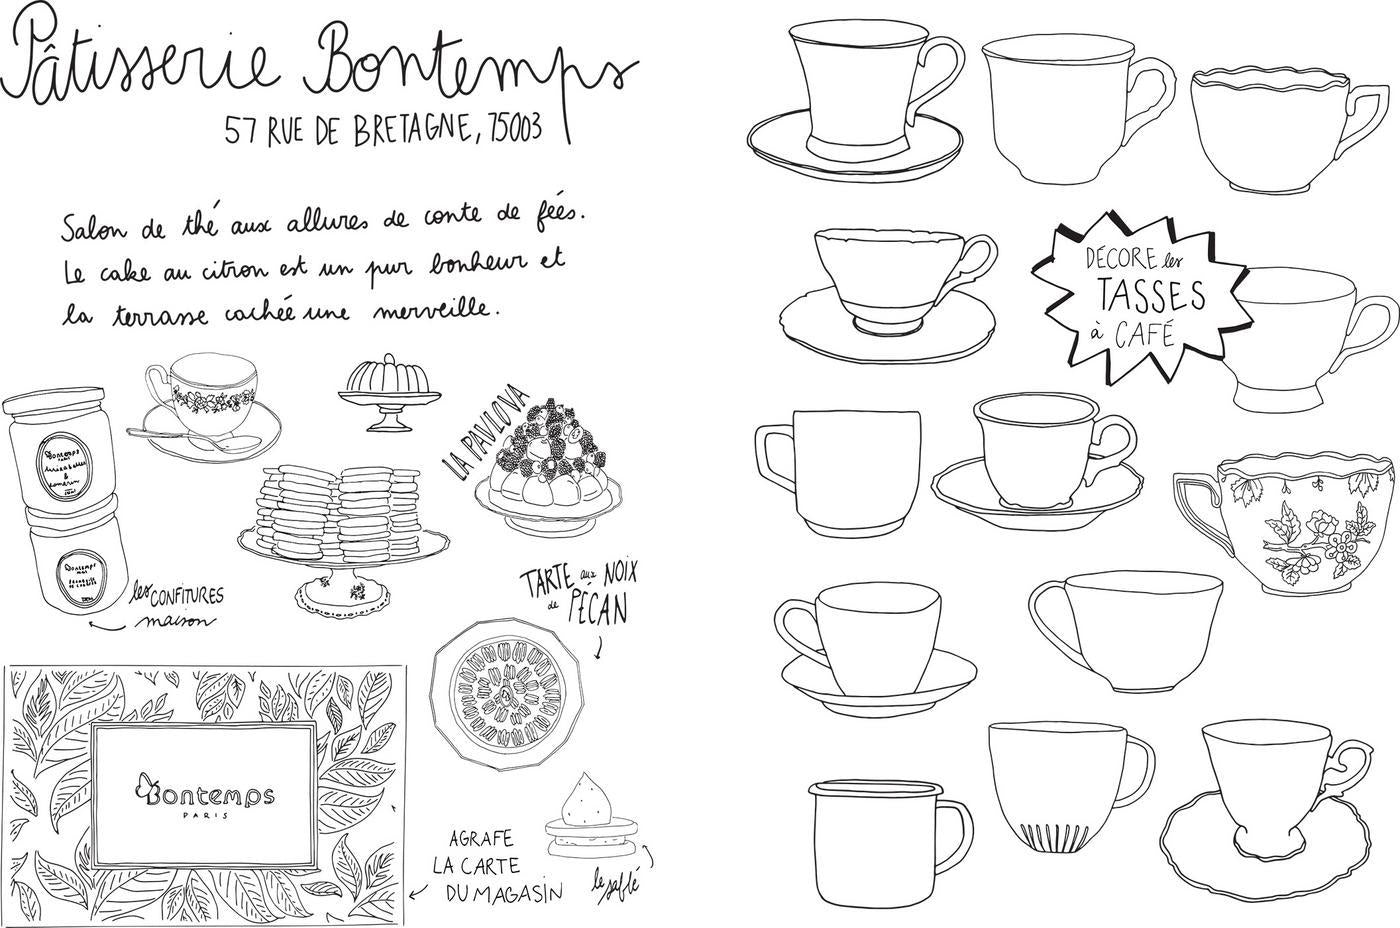 Pâtisserie Bontemps
57 RUE DE BRETAGNE, 75003
Salon de thé aux allures de conte de fées.
Le cake au citron est un pur bonheur et
la terrasse cachée une merveille.
LA PAVLOVA
Bontemps
PARIS
Bontemps
les CONFITURES
maison
TARTE aux NOIX
de PÉCAN
Bontemps
PARIS
AGRAFE
LA CARTE
DU MAGASIN
le sablé
DÉCORE les
TASSES
à CAFÉ